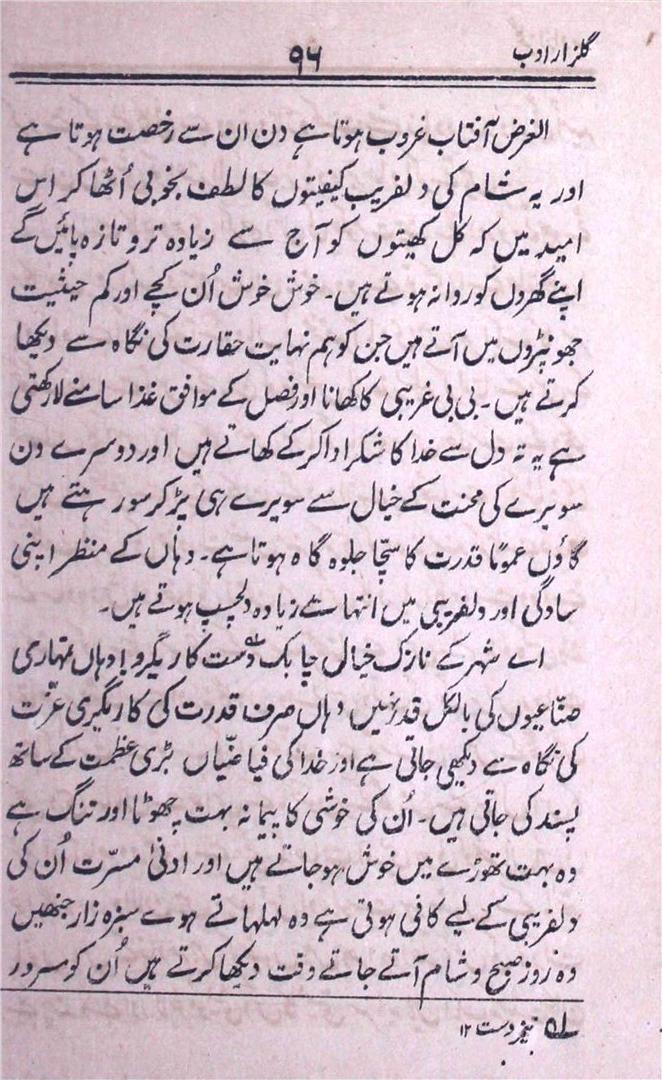 گلزار ادب
۹۶
الغرض آفتاب غروب ہوتا ہے دن ان سے رخصت ہوتا ہے
اور یہ شام کی دلفریب کیفیتوں کا لطف بخوبی اُٹھا کر اس
امید میں کہ کل کھیتوں کو آج سے زیادہ تر و تازہ پائیں گے
اپنے گھروں کو روانہ ہوتے ہیں۔ خوش خوش اُن کچے اور کم حیثیت
جھونپڑوں میں آتے ہیں جن کو ہم نہایت حقارت کی نگاہ سے دیکھا
کرتے ہیں۔ بی بی غریبی کا کھانا اور فصل کے موافق غذا سامنے لا رکھتی
ہے یہ تہ دل سے خدا کا شکر ادا کر کے کھاتے ہیں اور دوسرے دن
سویرے کی محنت کے خیال سے سویرے ہی پڑ کر سو رہتے ہیں
گاؤں عموماً قدرت کا سچّا جلوہ گاہ ہوتا ہے۔ وہاں کے منظر اپنی
سادگی اور دلفریبی میں انتہا سے زیادہ دلچسپ ہوتے ہیں۔
اے شہر کے نازک خیالی چابک دست کاریگرو! وہاں تمہاری
صنّاعیوں کی بالکل قدر نہیں وہاں صرف قدرت کی کاریگری عزّت
کی نگاہ سے دیکھی جاتی ہے اور خدا کی فیاضیاں بڑی عظمت کے ساتھ
پسند کی جاتی ہیں۔ اُن کی خوشی کا پیمانہ بہت چھوٹا اور تنگ ہے
وہ بہت تھوڑے میں خوش ہو جاتے ہیں اور ادنیٰ مسرّت اُن کی
دلفریبی کے لیے کافی ہوتی ہے وہ لہلہاتے ہوے سبزہ زار جنھیں
وہ روز صبح و شام آتے جاتے وقت دیکھا کرتے ہیں اُن کو مسرور
دست ۱۲